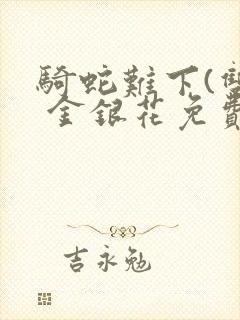 騎蛇難下(雙
金銀花免費
吉永勉